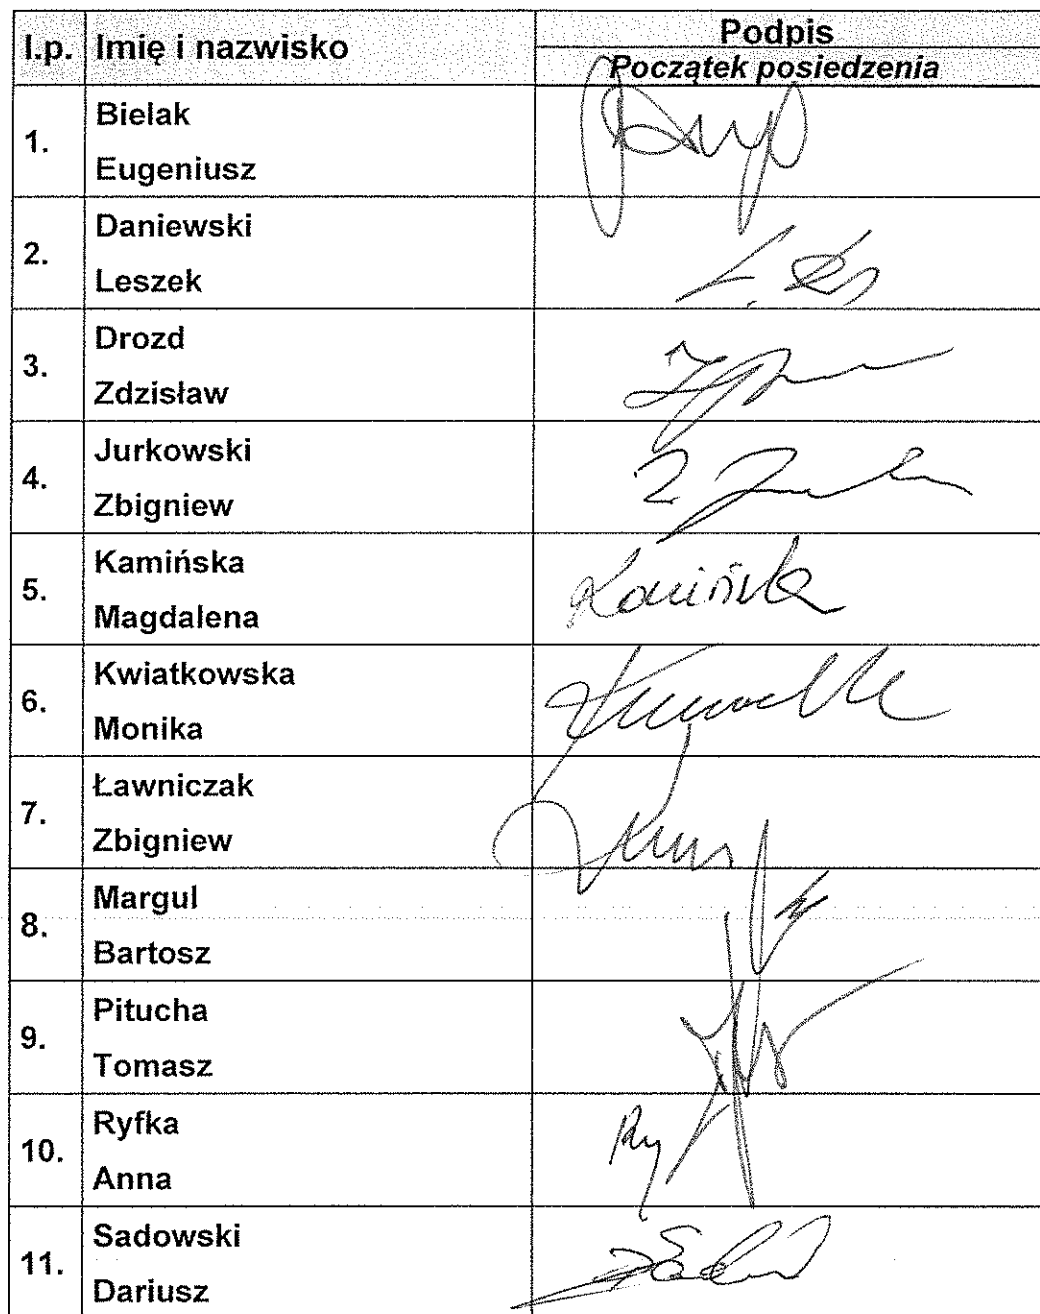 l.p. Imię i nazwisko Podpis
Początek posiedzenia
1. Bielak
Eugeniusz
2. Daniewski
Leszek
3. Drozd
Zdzisław
4. Jurkowski
Zbigniew
5. Kamińska
Magdalena
Kamińska
6. Kwiatkowska
Monika
7. Ławniczak
Zbigniew
8. Margul
Bartosz
9. Pitucha
Tomasz
10. Ryfka
Anna
11. Sadowski
Dariusz